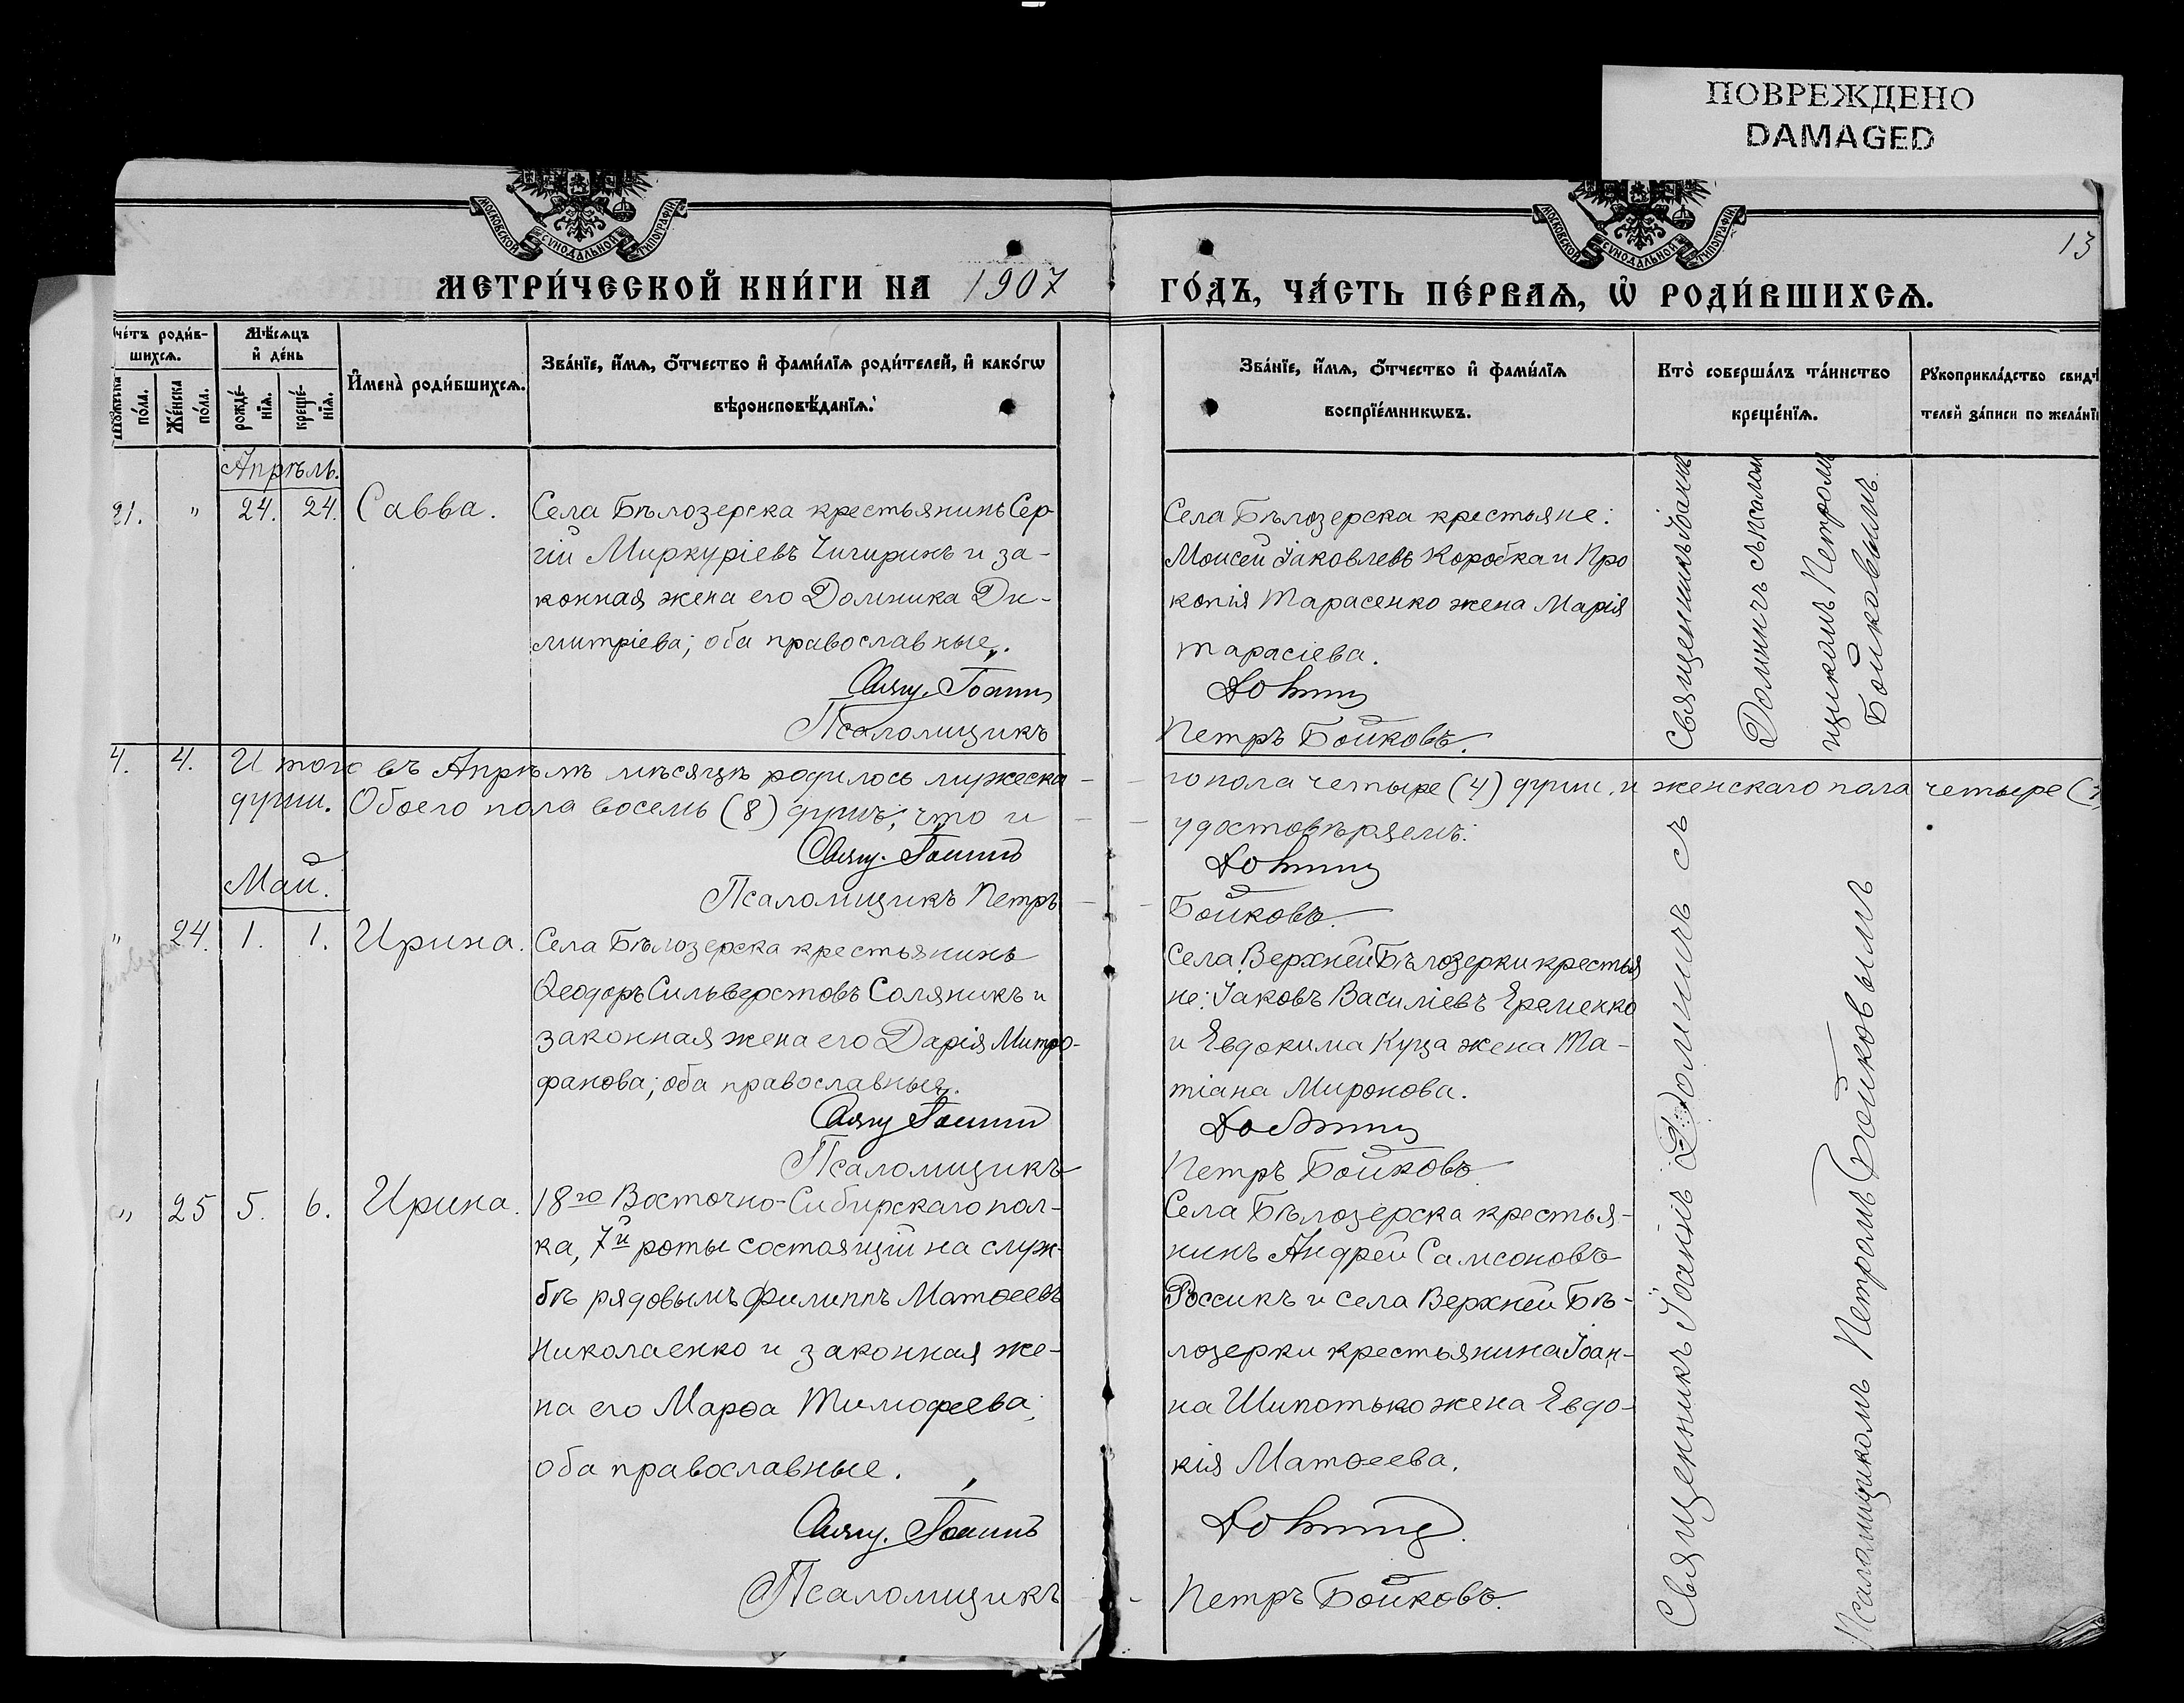 ПОВРЕЖДЕНО
DAMAGED
МОСКОВСКОЙ СѴНОДАЛЬНОЙ ТИПОГРАФІИ
МОСКОВСКОЙ СѴНОДАЛЬНОЙ ТИПОГРАФІИ
13
МЕТРИ́ЧЕСКОЙ КНИ́ГИ НА 1907
ГО́ДЪ, ЧА́СТЬ ПЕ́РВАѦ, Ѡ҆ РОДИ́ВШИХСѦ.
Сче́тъ роди́в-
шихсѧ.
Мѣ́сѧцъ
и҆ де́нь
Мꙋ́жеска по́ла.
Же́нска по́ла.
рожде́-
нїѧ.
креще́-
нїѧ.
И҆мена̀ роди́вшихсѧ.
Зва́нїе, и҆́мѧ, ѻ҆́тчество и҆ фами́лїѧ роди́телей, и҆ како́гѡ
вѣроисповѣ́данїѧ.
Зва́нїе, и҆́мѧ, ѻ҆́тчество и҆ фами́лїѧ
воспрїе́мникѡвъ.
Кто̀ соверша́лъ та́инство
креще́нїѧ.
Рꙋкоприкла́дство свидѣ
телей за́писи по жела́нїю
Апрѣль.
21. " 24. 24. Савва.
Села Бѣлозерска крестьянинъ Сер
гій Миркуріевъ Чигиринъ и за-
конная жена его Домника Ди-
митріева; оба православные.
Свящ. Іоаннъ
Псаломщикъ
Села Бѣлозерска крестьяне:
Моисей Іаковлевъ Коробка и Про
копія Тарасенко жена Марія
Тарасіева.
Петръ Бойковъ.
Священникъ Іоаннъ
Долничъ съ псалом
щикомъ Петромъ
Бойковымъ
4. 4. Итого въ Апрѣлѣ мѣсяцѣ родилось мужеска
го пола четыре (4) души, и женскаго пола четыре (4)
души. Обоего пола восемь (8) душъ; что и
удостовѣряемъ:
Свящ. Іоаннъ
Псаломщикъ Петръ
Бойковъ.
Май.
" 24. 1. 1. Ирина.
Села Бѣлозерска крестьянинъ
Ѳеодоръ Сильверстовъ Соляникъ и
законная жена его Дарія Митро-
фанова; оба православныя.
Свящ Іоаннъ
Псаломщикъ
Села Верхней Бѣлозерки крестья
не: Іаковъ Василіевъ Еременко
и Евдокима Куца жена Та-
тіана Миронова.
Петръ Бойковъ
" 25 5. 6. Ирина.
18го Восточно-Сибирскаго пол-
ка, 7й роты состоящій на служ-
бѣ рядовымъ Филиппъ Матѳеевъ
Николаенко и законная же-
на его Марѳа Тимофеева;
оба православные.
Свящ. Іоаннъ
Псаломщикъ
Села Бѣлозерска крестья-
нинъ Андрей Самсоновъ
Россикъ и села Верхней Бѣ-
лозерки крестьянина Іоан-
на Шипотько жена Евдо-
кія Матѳеева.
Петръ Бойковъ.
Священникъ Іоаннъ Долничъ съ
Псаломщикомъ Петромъ Бойковымъ